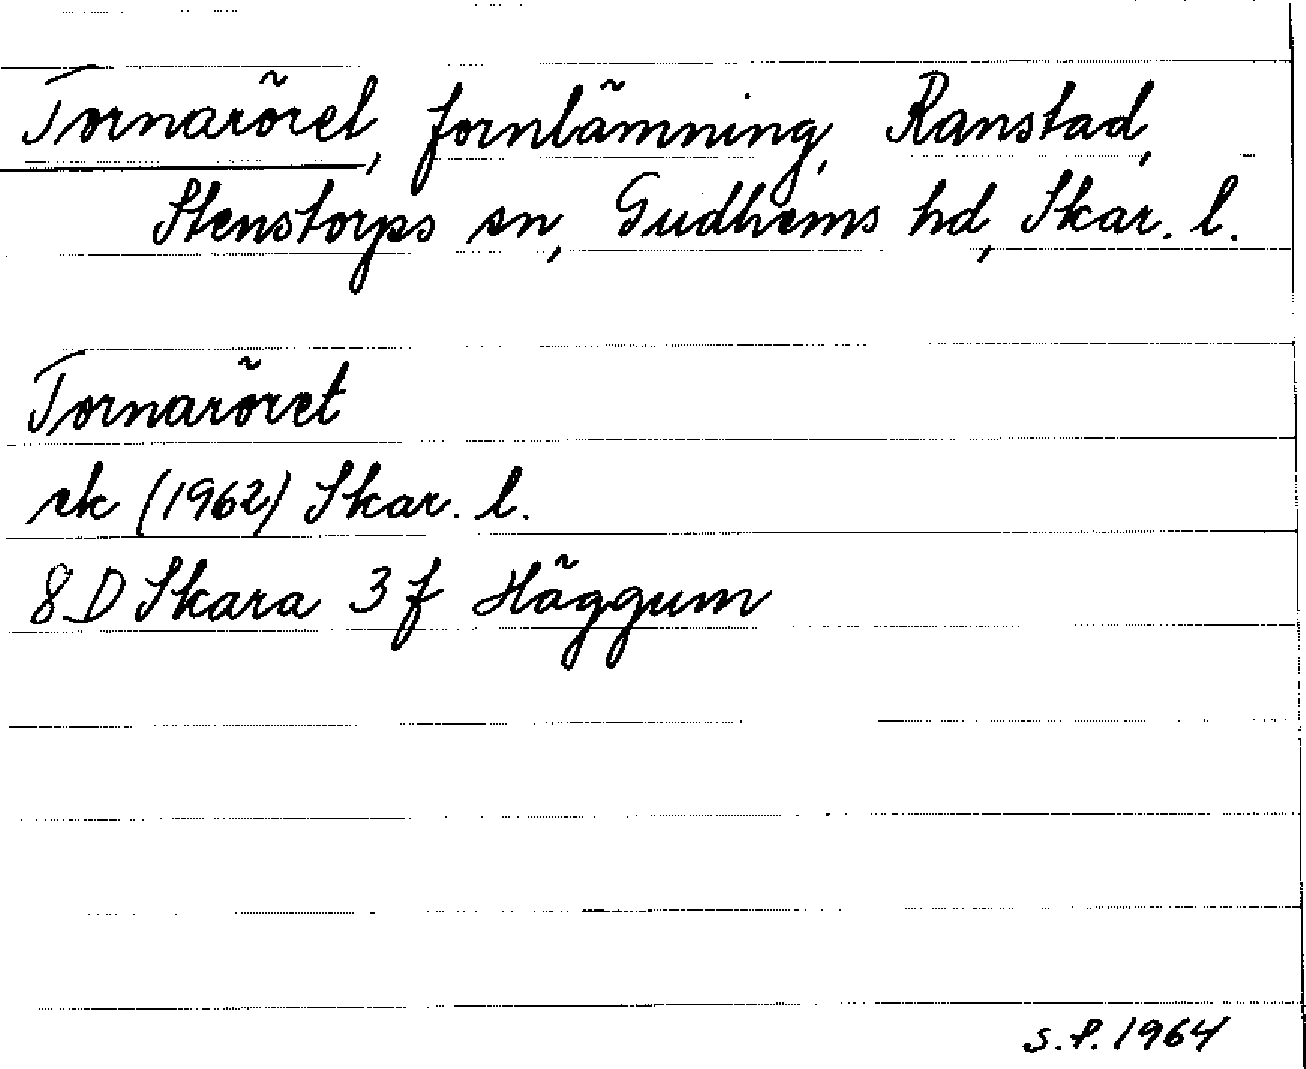 Tornaröret, fornlämning, Ranstad,
Stenstorps sn, Gudhems hd, Skar. l.
Tornaröret
ek (1962) Skar. l.
8 D Skara 3 f Häggum
S.P. 1964